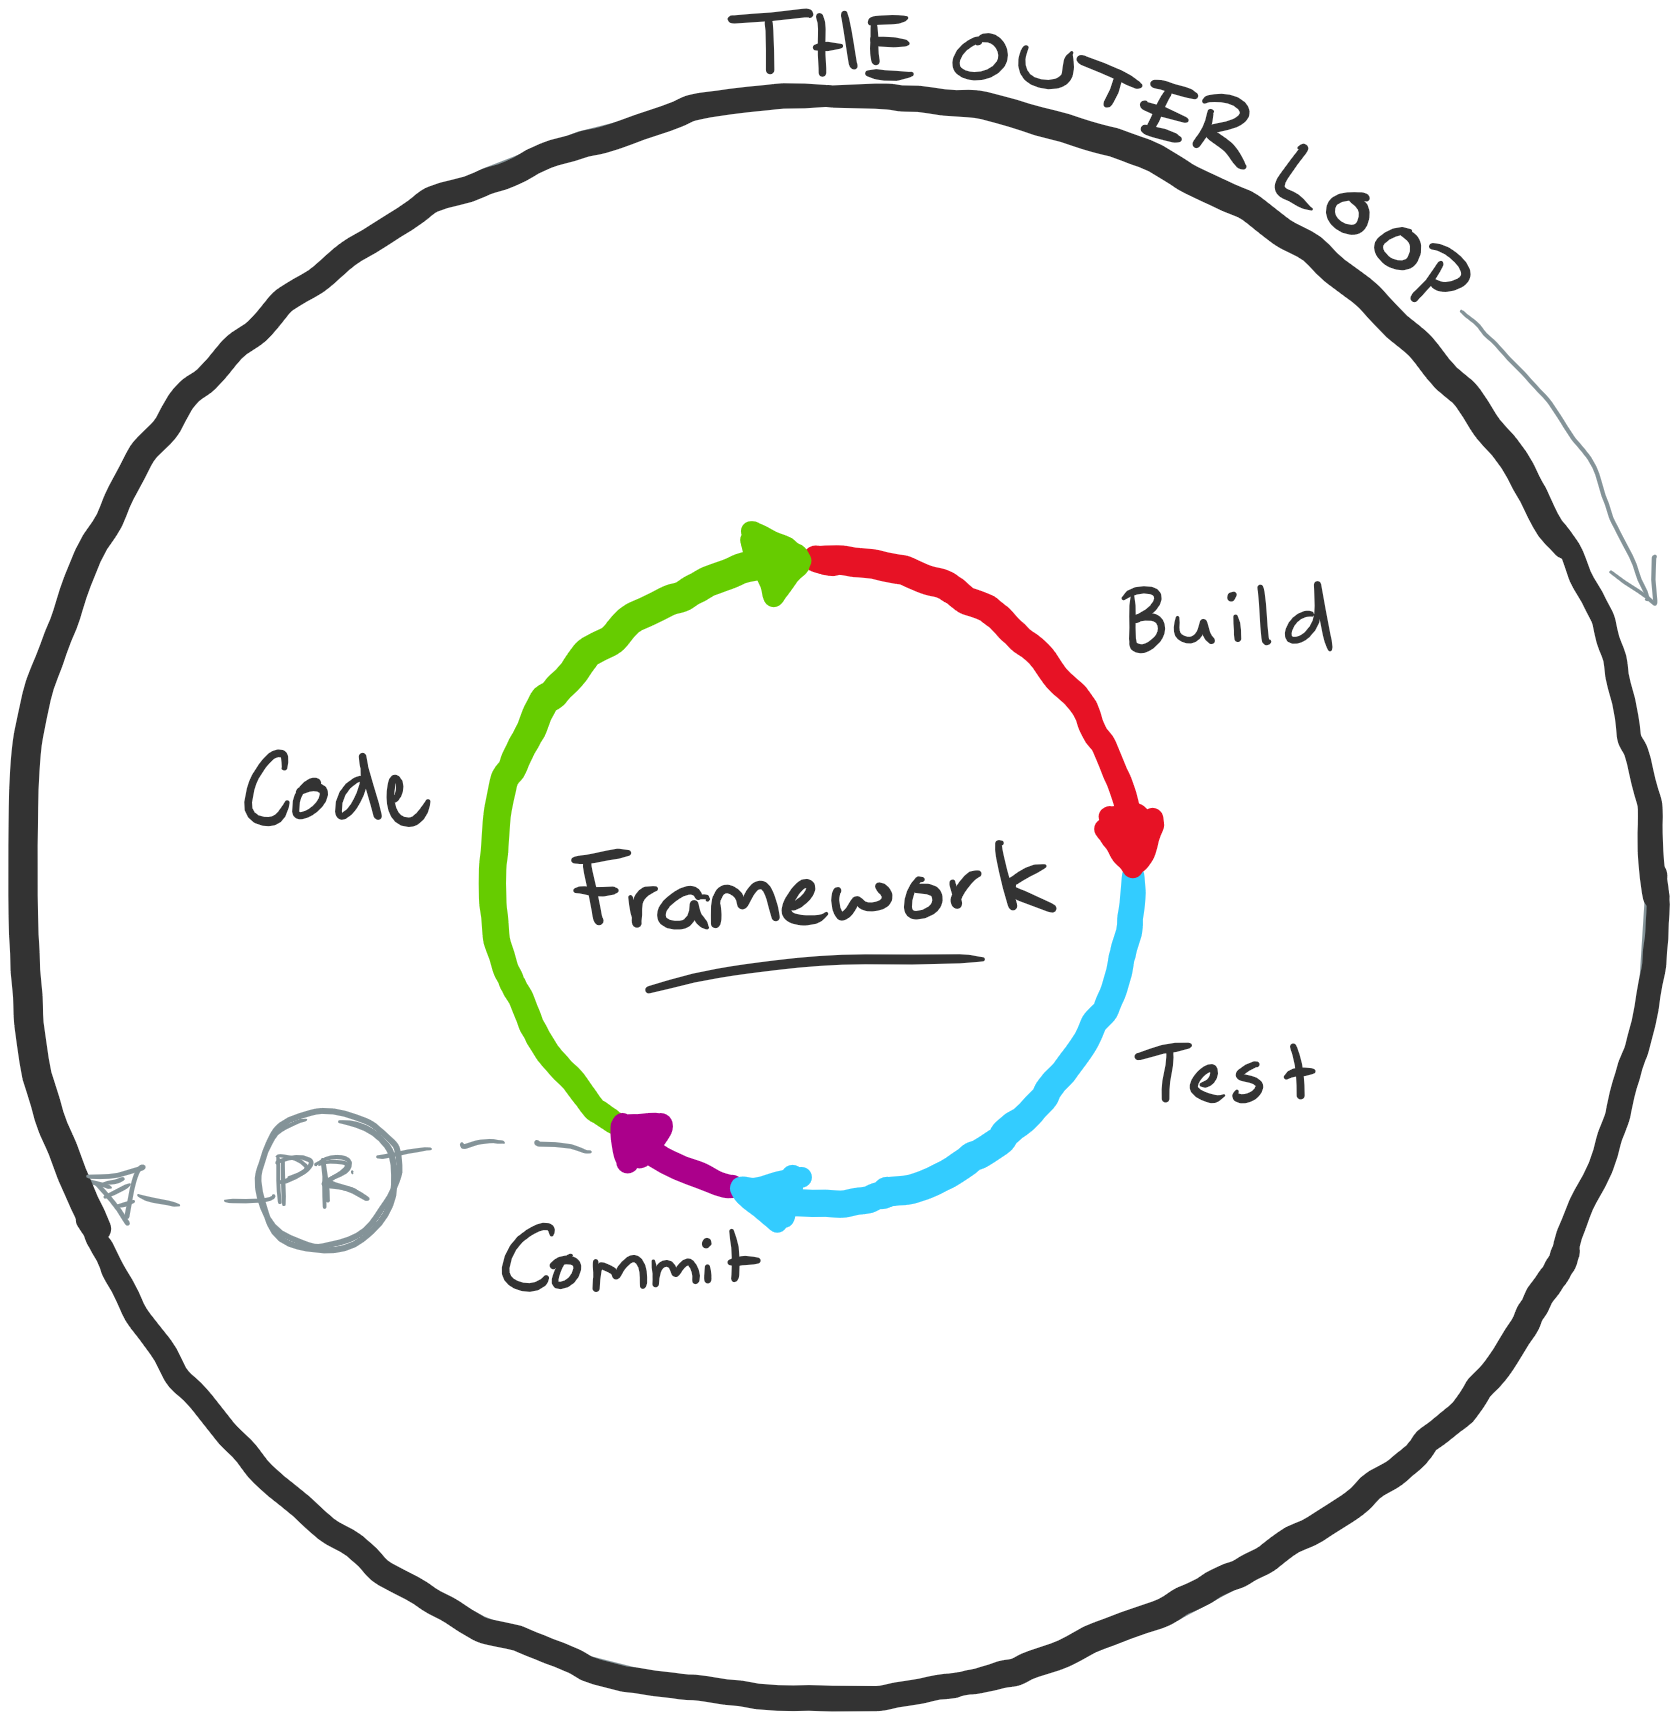 THE OUTER LOOP
Build
Code
Framework
Test
PR
Commit